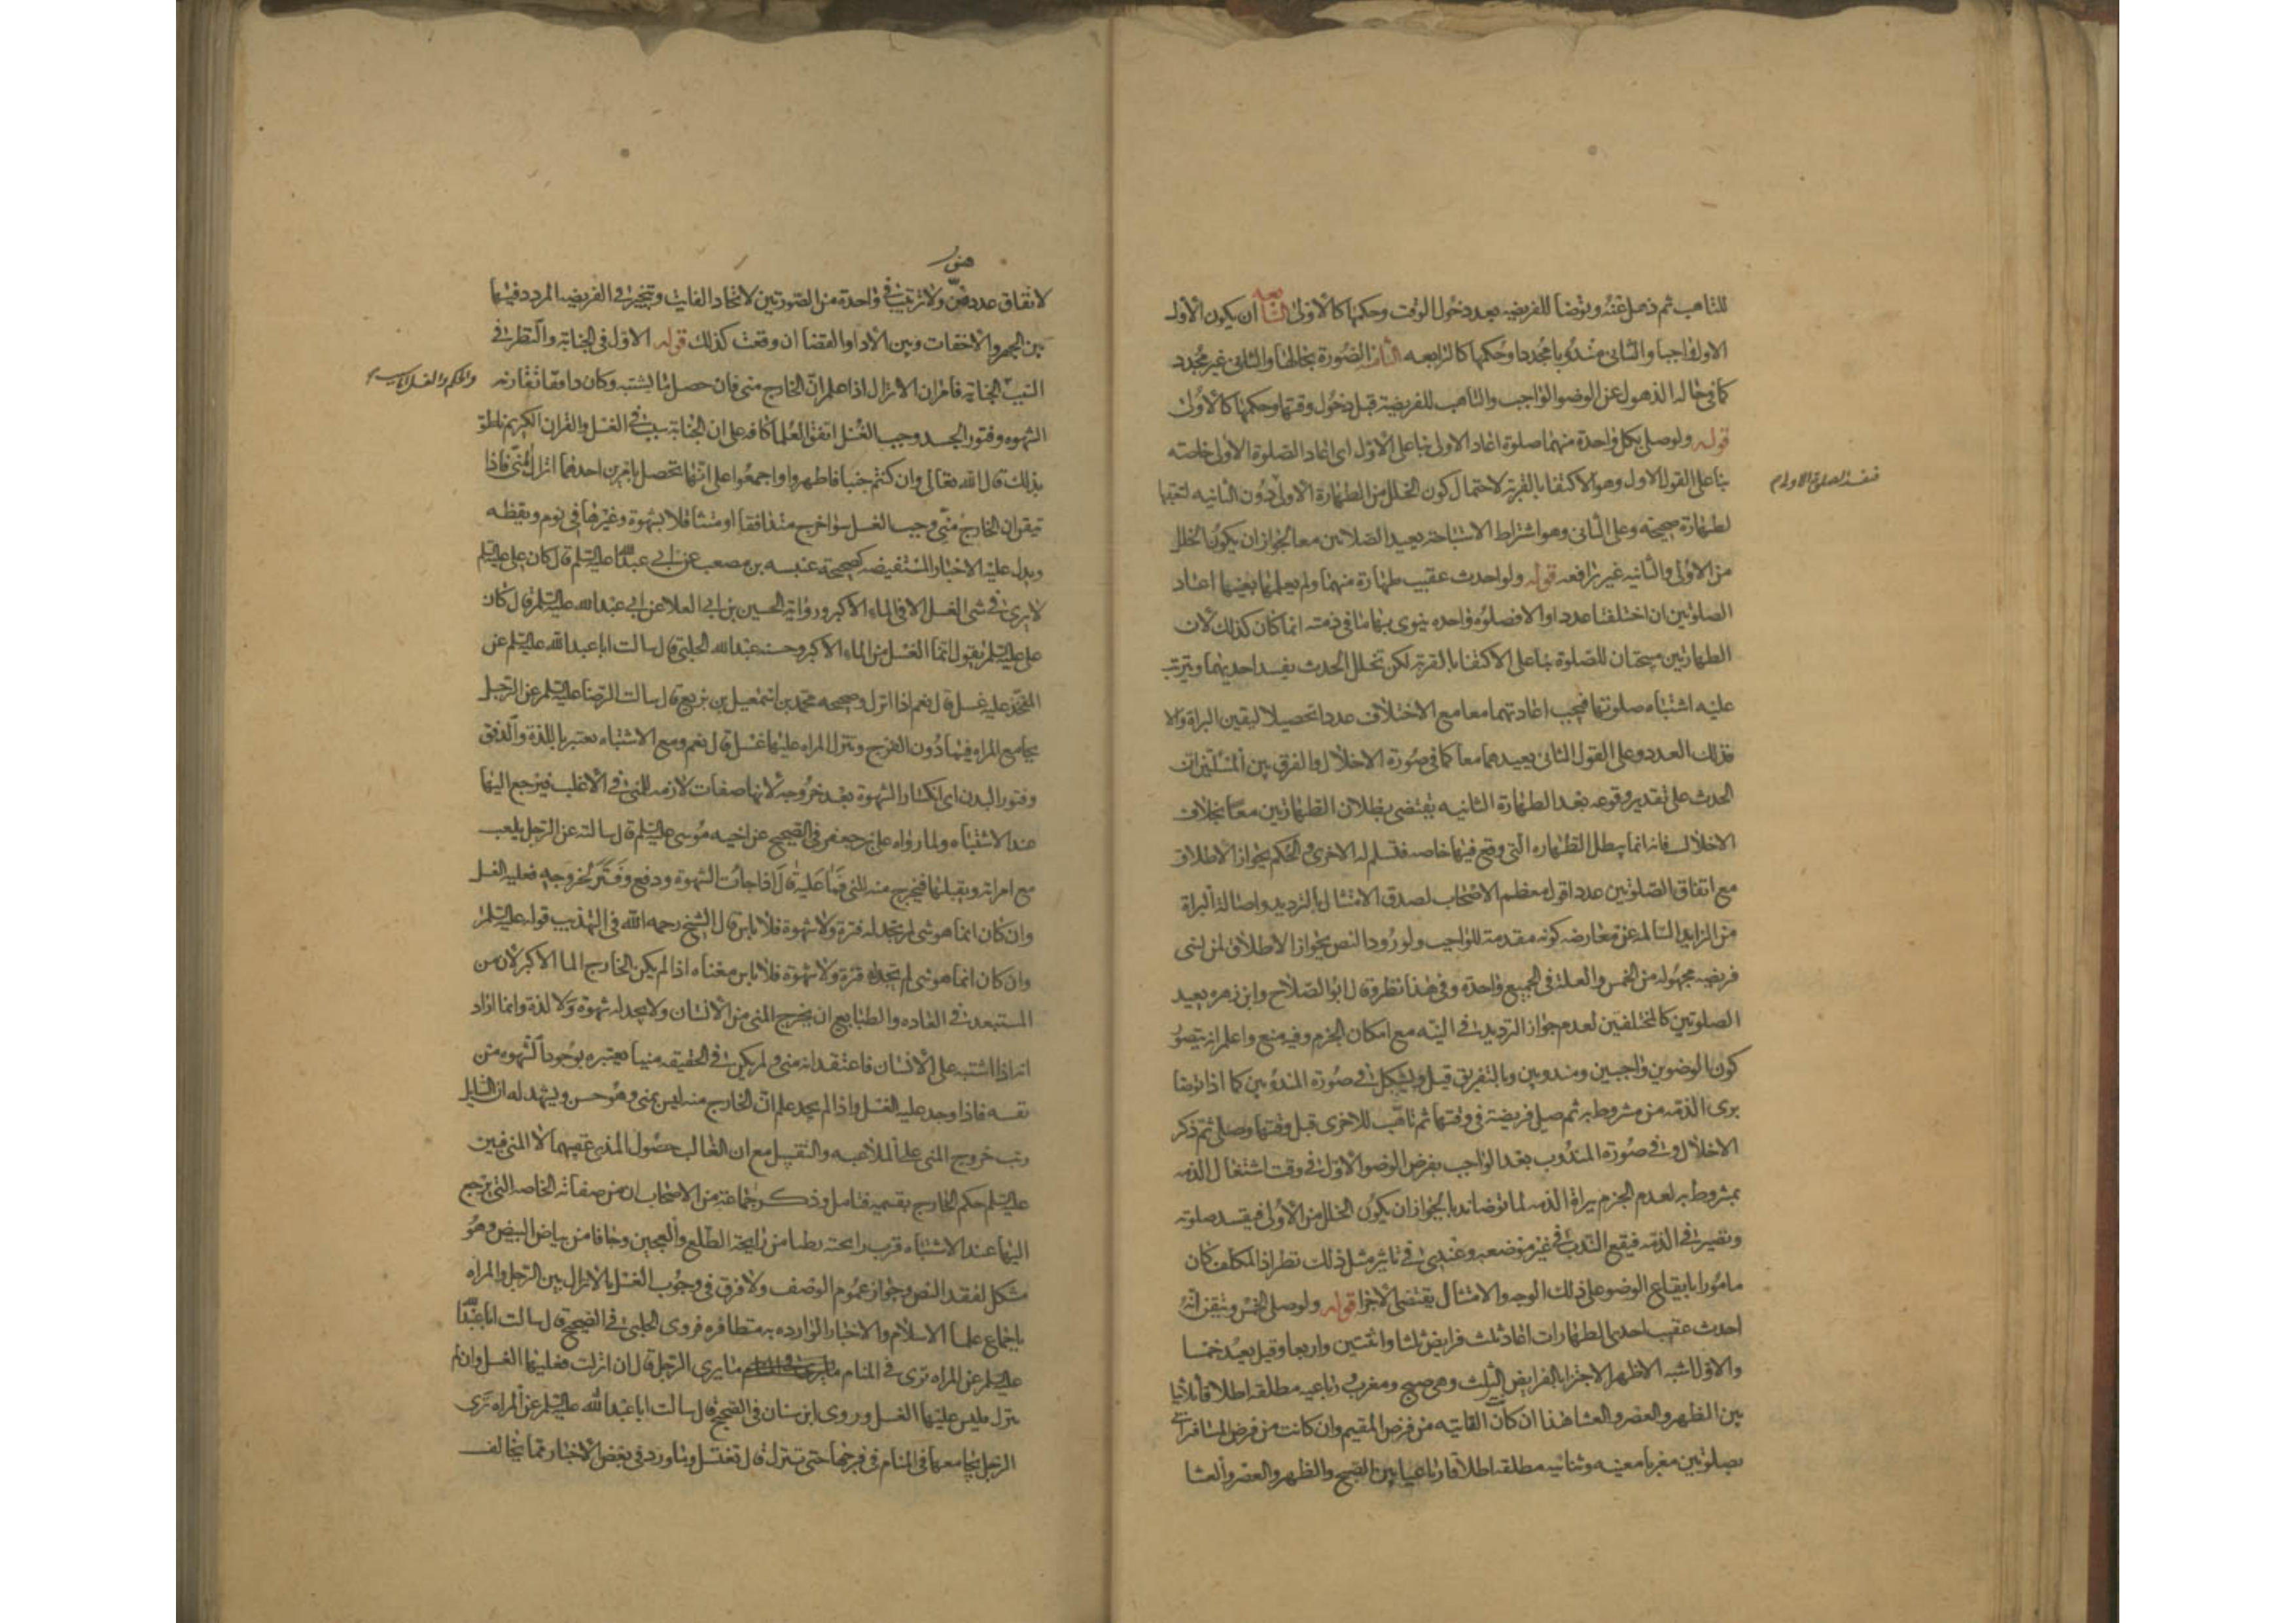 للتاهب ثم ذهل عنه وتوضا للفريضه بعد دخول الوقت وحكمها كالاولى السابعه ان يكون الاول
الاول واجبا والثانى مندوبا مجددا وحكمها كالرابعه الثامنه الصورة بحالها والثانى غير مجدد
كما فى حاله الذهول عن الوضو الواجب والتاهب للفريضة قبل دخول وقتها وحكمها كالاولى
قوله ولو صلى بكل واحدة منهما صلوة اعاد الاولى بنا على الاول اى اعاد الصلوة الاولى خاصه
بنا على القول الاول وهو الاكتفا بالقربة لاحتمال كون الخلل من الطهارة الاولى دون الثانيه لتعقبها
لطهارة صحيحة وعلى الثانى وهو اشتراط الاستباحة يعيد الصلاتين معا لجواز ان يكون الخلل
من الاولى والثانيه غير رافعه قوله ولو احدث عقيب طهارة منهما ولم يعلمها بعينها اعاد
الصلوتين ان اختلفتا عددا والا فصلوة واحده ينوى بها ما فى ذمته انما كان كذلك لان
الطهارتين مبيحتان للصلوة بنا على الاكتفا بالقربة لكن تخلل الحدث يفسد احديهما ويترتب
عليه اشتباه صلوتها فيجب اعادتهما معا مع الاختلاف عددا تحصيلا ليقين البراة والا
فذلك العدد وعلى القول الثانى يعيدهما معا كما فى صورة الاخلال والفرق بين المسئلتين ان
الحدث على تقدير وقوعه بعد الطهارة الثانيه يقتضى بطلان الطهارتين معا بخلاف
الاخلال فانه انما يبطل الطهاره التى وقع فيها خاصه فتسلم له الاخرى والحكم بجواز الاطلاق
مع اتفاق الصلوتين عددا قول معظم الاصحاب لصدق الامتثال بالترديد واصالة البراة
من الزايد السالمه عن معارضه كونه مقدمة للواجب ولورود النص بجواز الاطلاق لمن نسى
فريضه مجهوله من الخمس والعلة فى الجميع واحدة وفى هذا نظر وقال ابو الصلاح وابن زهره يعيد
الصلوتين كالمختلفين لعدم جواز الترديد فى النيه مع امكان الجزم وفيه منع واعلم انه يتصور
كون الوضوين واجبين ومندوبين وبالتفريق قيل ويشكل فى صورة المندوبين كما اذا توضا
برى الذمه من مشروط به ثم صلى فريضة فى وقتها ثم تاهب للاخرى قبل وقتها وصلى ثم ذكر
الاخلال وفى صورة المندوب بعد الواجب بفرض الوضو الاول فى وقت اشتغال الذمه
بمشروط به لعدم الجزم ببراة الذمه لما توضا ندبا لجواز ان يكون الخلل من الاولى فيفسد صلوته
وتصير فى الذمه فيقع الندب فى غير موضعه وعندى فى تاثير مثل ذلك نظر اذ المكلف كان
مامورا بايقاع الوضو على ذلك الوجه والامتثال يقتضى الاجزا قوله ولو صلى الخمس وتيقن انه
احدث عقيب احدى الطهارات اعاد ثلث فرايض ثلثا واثنتين واربعا وقيل يعيد خمسا
والاول اشبه الاظهر الاجتزا بالفرايض الثلث وهى صبح ومغرب ورباعيه مطلقه اطلاقا ثلاثيا
بين الظهر والعصر والعشا هذا ان كانت الفايته من فرض المقيم وان كانت من فرض المسافر
بصلوتين مغربا معينه وثنائيه مطلقه اطلاقا رباعيا بين الصبح والظهر والعصر والعشا
لاتفاق عددهن ولا ترتيب فى واحدة من الصورتين لاتحاد الفايت ويتخير فى الفريضه المردد فيها
بين الجهر والاخفات وبين الادا والقضا ان وقعت كذلك قوله الاول فى الجنابة والنظر فى
السبب والحكم والغسل اما سبب الجنابة فامران الانزال اذا علم ان الخارج منى فان حصل ما يشتبه وكان دافقا تقارنه
الشهوه وفتور الجسد وجب الغسل اتفق العلما كافه على ان الجنابة سبب فى الغسل والقران الكريم ناطق
بذلك قال الله تعالى وان كنتم جنبا فاطهروا واجمعوا على انها تحصل بامرين احدهما انزال المنى فاذا
تيقن ان الخارج منى وجب الغسل سوا خرج متدافقا او متثاقلا بشهوة وغيرها فى نوم ويقظه
ويدل عليه الاخبار المستفيضه كصحيحة عنبسه بن مصعب عن ابى عبد الله عليه السلم قال كان على عليه السلم
لا يرى فى شى الغسل الا فى الماء الاكبر ورواية الحسين بن ابى العلا عن ابى عبد الله عليه السلم قال كان
على عليه السلم يقول انما الغسل من الماء الاكبر وحسنه عبد الله الحلبى قال سالت ابا عبد الله عليه السلم عن
المفخذ عليه غسل قال نعم اذا انزل وصحيحه محمد بن اسمعيل بن بزيع قال سالت الرضا عليه السلم عن الرجل
يجامع المراه فيما دون الفرج وتنزل المراه عليها غسل قال نعم ومع الاشتباه يعتبر باللذة والدفق
وفتور البدن اى انكسار الشهوة بعد خروجه لانها صفات لازمه للمنى فى الاغلب فيرجع اليها
عند الاشتباه ولما رواه على بن جعفر فى الصحيح عن اخيه موسى عليه السلم قال سالته عن الرجل يلعب
مع امراته ويقبلها فيخرج منه المنى فما عليه قال اذا جات الشهوة ودفع وفتر بخروجه فعليه الغسل
وان كان انما هو شى لم يجد له فترة ولا شهوة فلا باس قال الشيخ رحمه الله فى التهذيب قوله عليه السلم
وان كان انما هو شى لم يجد له فترة ولا شهوة فلا باس معناه اذا لم يكن الخارج الما الاكبر لان من
المستبعد فى العاده والطبايع ان يخرج المنى من الانسان ولا يجد له شهوة ولا لذة وانما اراد
انه اذا اشتبه على الانسان فاعتقد انه منى ولم يكن فى الحقيقه منيا يعتبره بوجود الشهوه من
نفسه فاذا وجد عليه الغسل واذا لم يجد علم ان الخارج منه ليس بمنى وهو حسن ويشهد له ان السايل
رتب خروج المنى على الملاعبه والتقبيل مع ان الغالب حصول المذى عقيبهما لا المنى فبين
عليه السلم حكم الخارج بقسميه فتامل وذكر جماعة من الاصحاب ان من صفاته الخاصه التى يرجع
اليها عند الاشتباه قرب رايحته رطبا من رايحة الطلع والعجين وجافا من بياض البيض وهو
مشكل لفقد النص وجواز عموم الوصف ولا فرق فى وجوب الغسل بالانزال بين الرجل والمراه
باجماع علما الاسلام والاخبار الوارده به متظافره فروى الحلبى فى الصحيح قال سالت ابا عبد الله
عليه السلم عن المراه ترى فى المنام ما يرى الرجل قال ان انزلت فعليها الغسل وان لم
تنزل فليس عليها الغسل وروى ابن سنان فى الصحيح قال سالت ابا عبد الله عليه السلم عن المراه ترى
الرجل يجامعها فى المنام فى فرجها حتى تنزل قال تغتسل وما ورد فى بعض الاخبار مما يخالف